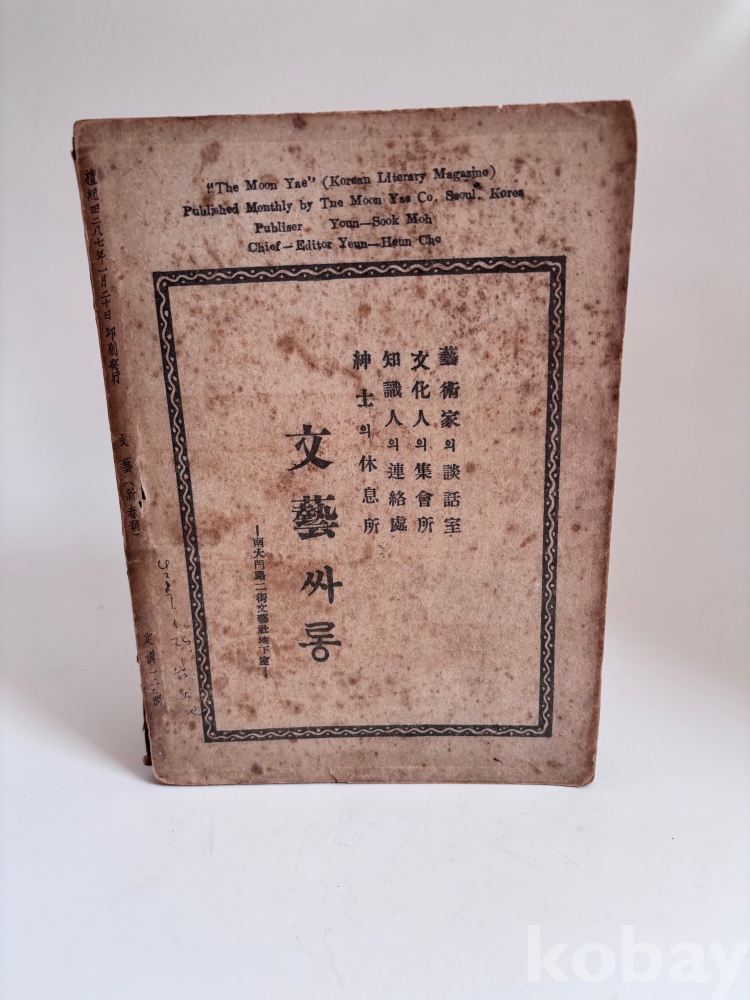 "The Moon Yae" (Korean Literary Magazine)
Published Monthly by Tne Moon Yae Co. Seoul. Korea
Publiser Youn—Sook Moh
Chief—Editor Yeun—Heun Cho
藝術家의談話室
文化人의集會所
知識人의連絡處
紳士의休息所
文藝싸롱
—南大門路二街文藝社地下室—
檀紀四二八七年一月二十日 印刷發行
文藝（新春號）
定價
kobay